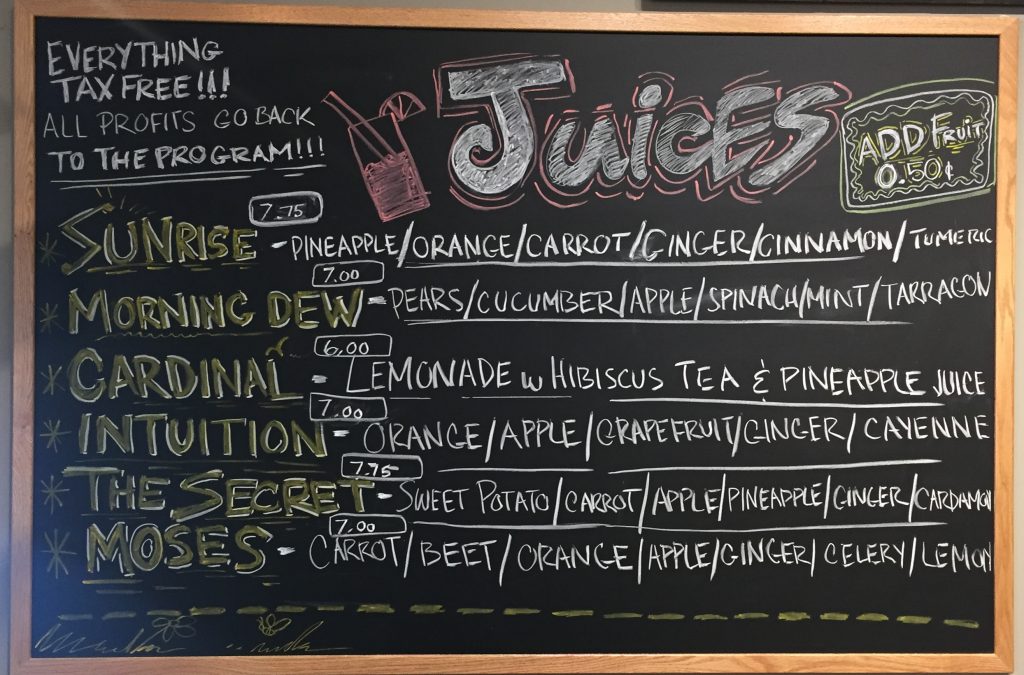 EVERYTHING
TAX FREE!!!
ALL PROFITS GO BACK
TO THE PROGRAM!!!
JUICES
ADD FRUIT
0.50¢
7.75
* SUNRISE - PINEAPPLE/ORANGE/CARROT/GINGER/CINNAMON/TUMERIC
7.00
* MORNING DEW - PEARS/CUCUMBER/APPLE/SPINACH/MINT/TARRAGON
6.00
* CARDINAL - LEMONADE w HIBISCUS TEA & PINEAPPLE JUICE
7.00
* INTUITION - ORANGE/APPLE/GRAPEFRUIT/GINGER/CAYENNE
7.75
* THE SECRET - SWEET POTATO/CARROT/APPLE/PINEAPPLE/GINGER/CARDAMON
7.00
* MOSES - CARROT/BEET/ORANGE/APPLE/GINGER/CELERY/LEMON